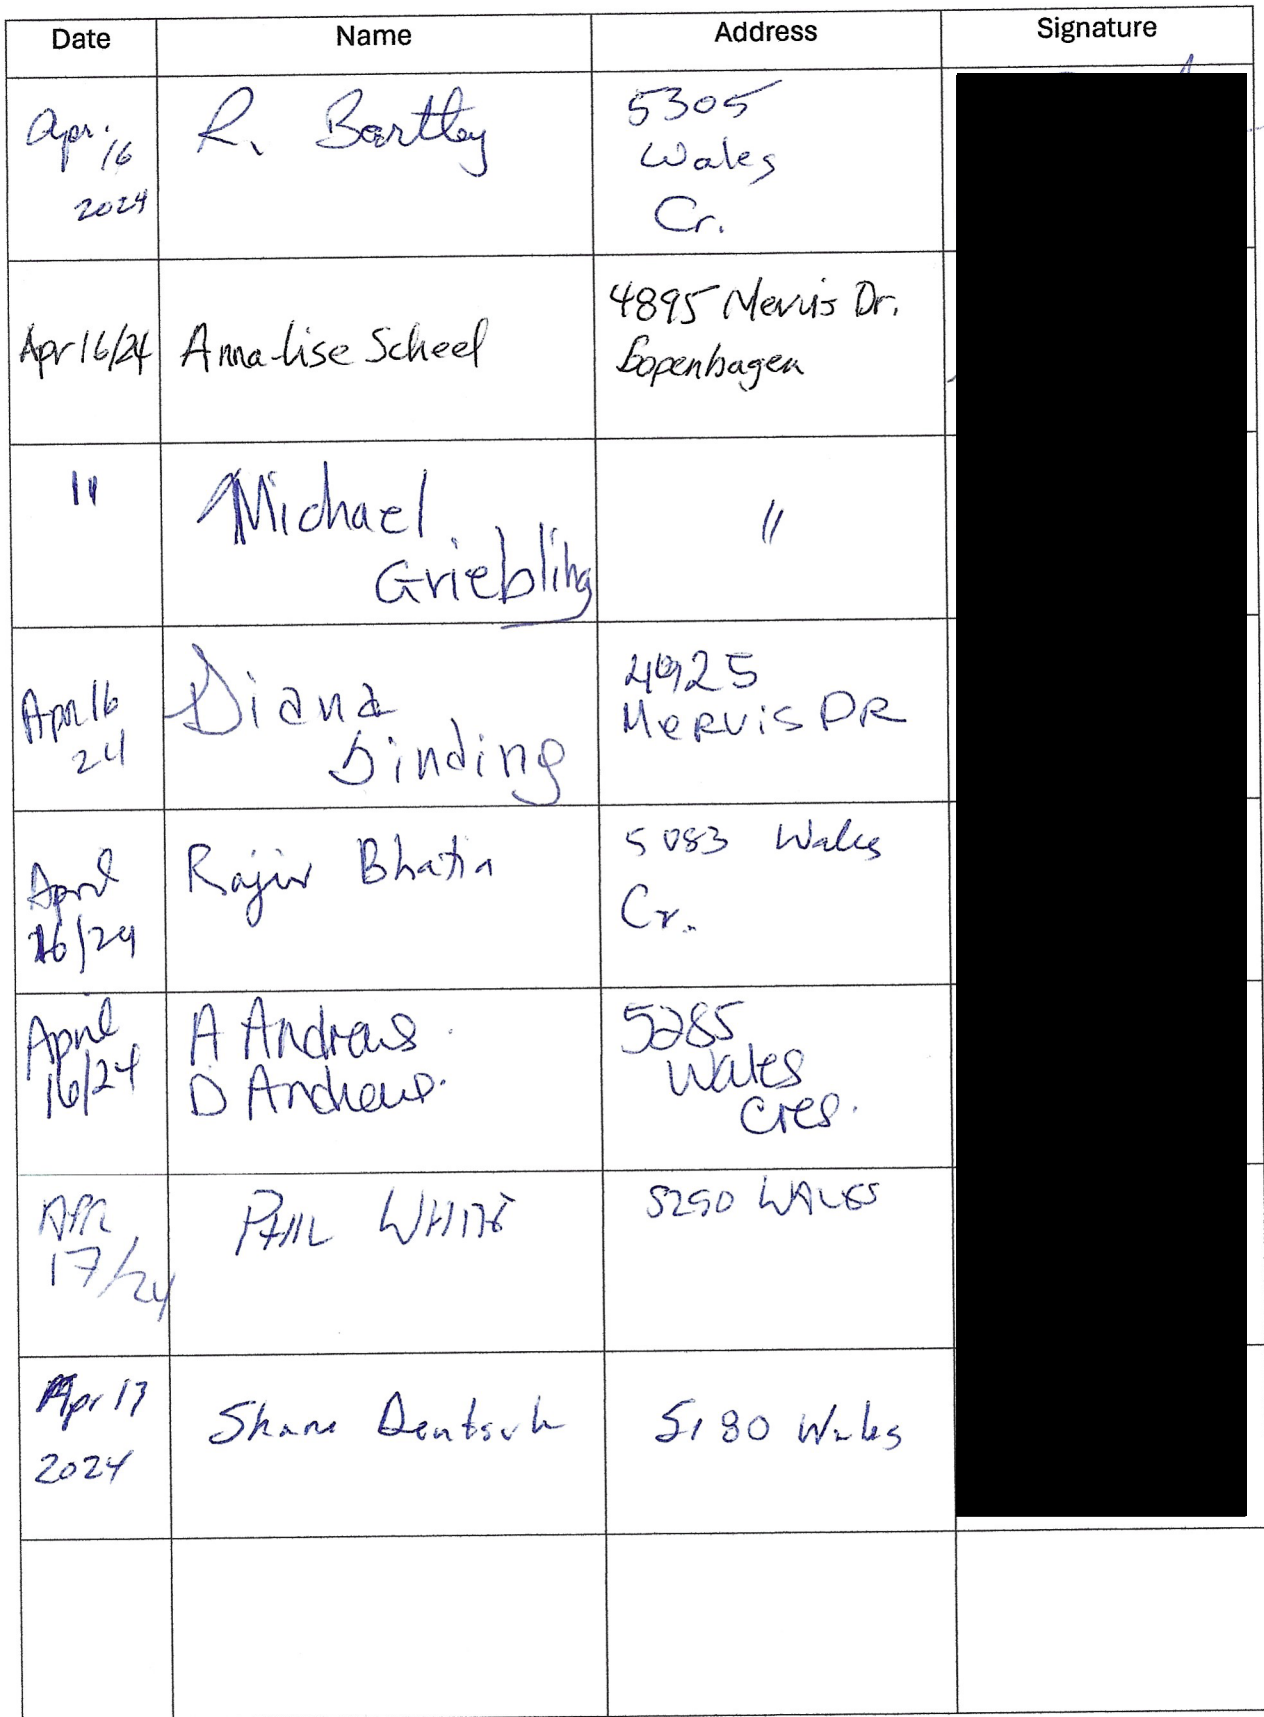 Date Name Address Signature
Apr. 16 2024
R. Bartley
5305
Wales
Cr.
Apr 16/24
Anna-Lise Scheel
4895 Mervis Dr.
Copenhagen
"
Michael
Griebling
"
Apr 16
24
Diana
Dinding
4925
Mervis DR
April
16/24
Rajiv Bhatia
5083 Wales
Cr.
April
16/24
A Andrews
D Andrews.
5285
Wales
Cres.
APR
17/24
PHIL WHITE
5290 WALES
Apr 17
2024
Shane Deutsch
5180 Wales